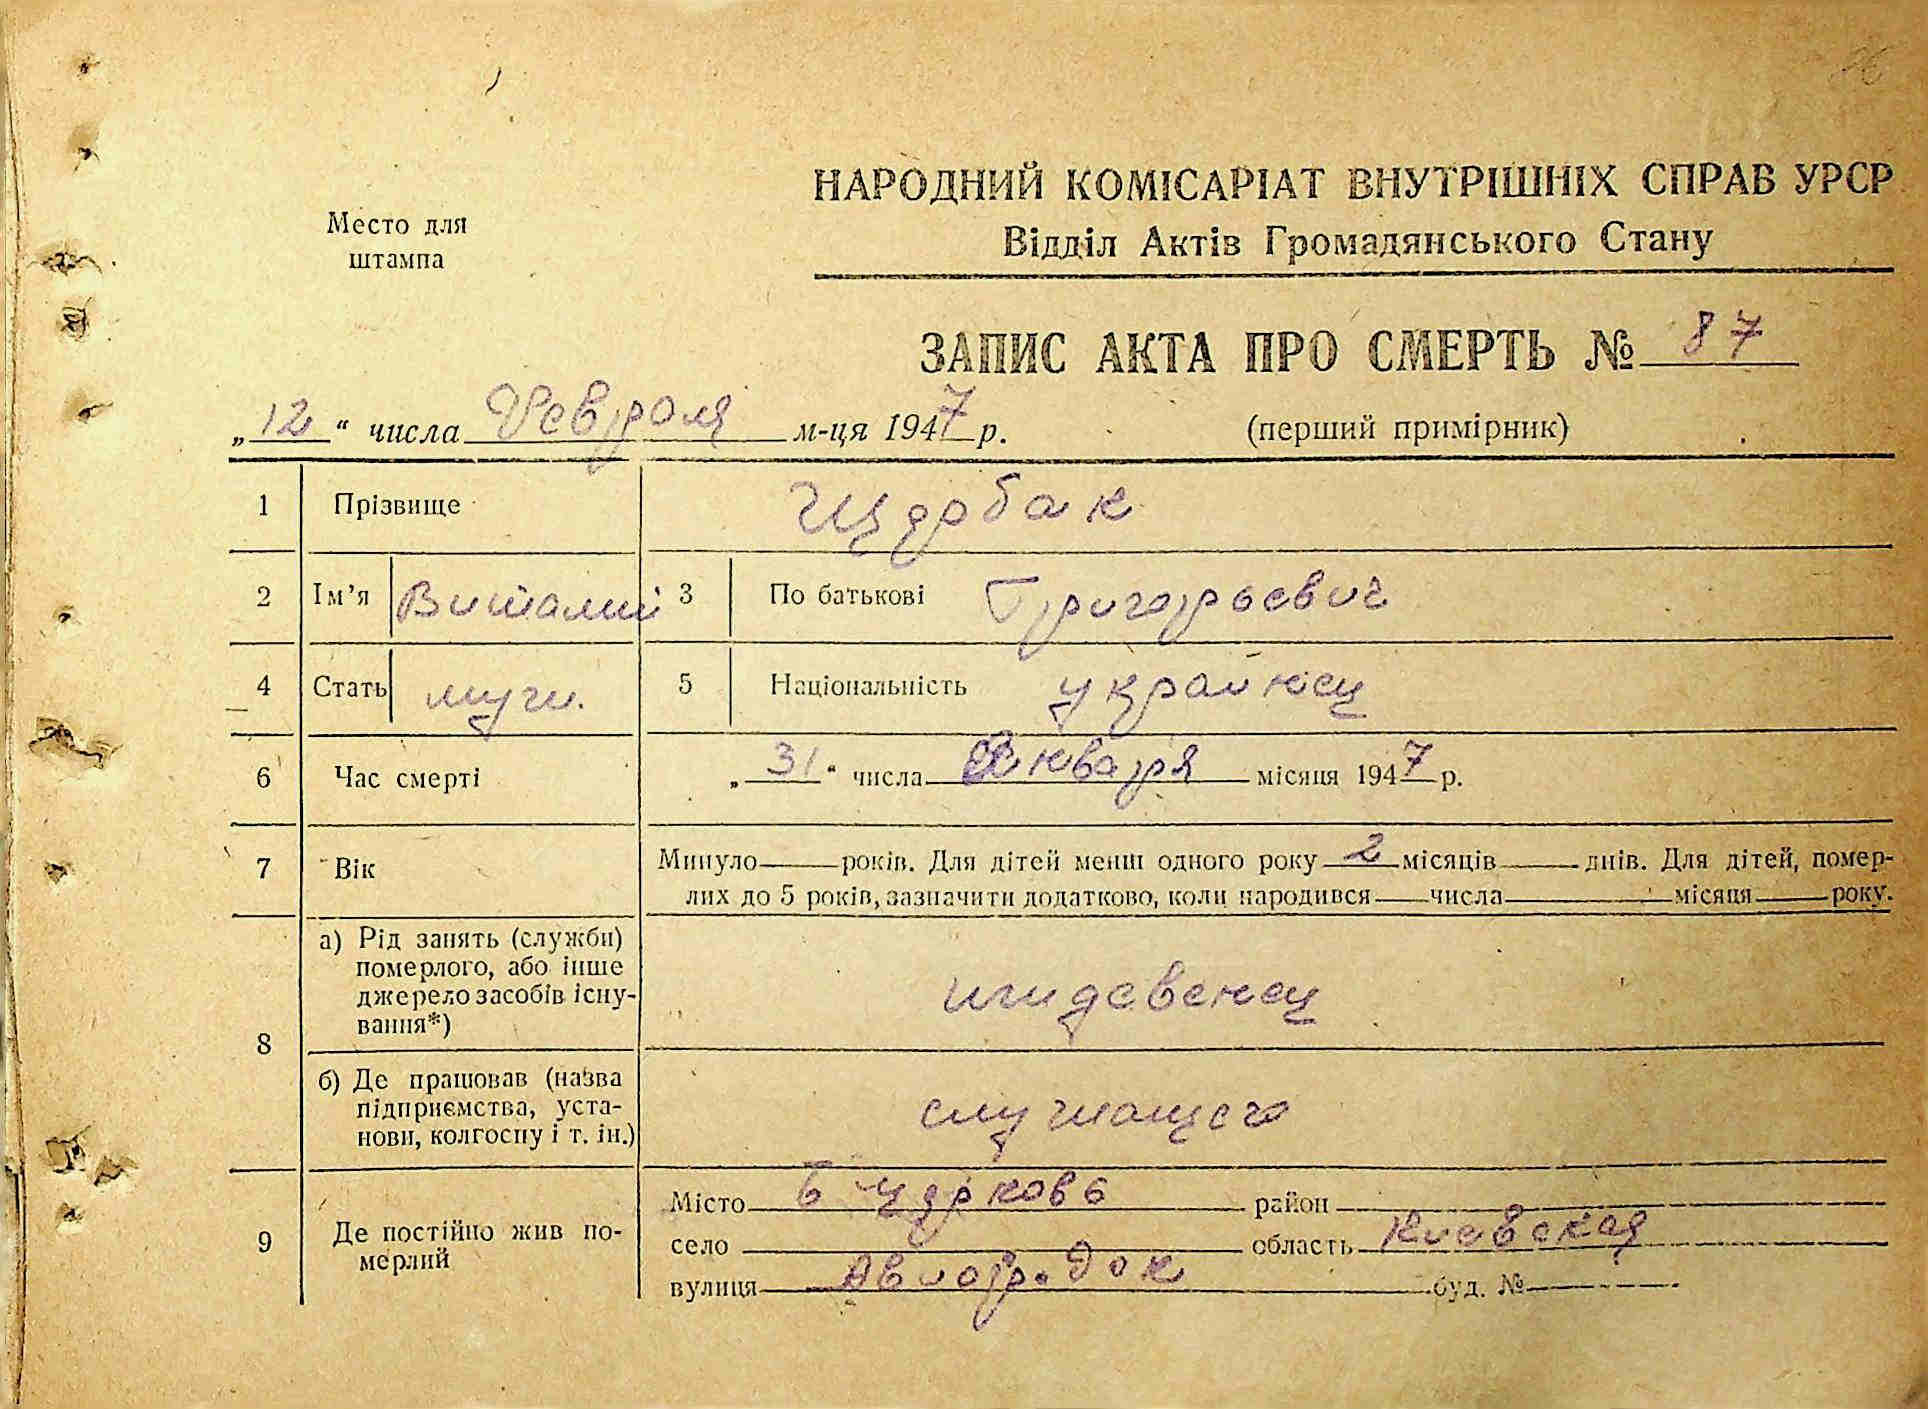 16
Место для
штампа
НАРОДНИЙ КОМІСАРІАТ ВНУТРІШНІХ СПРАВ УРСР
Відділ Актів Громадянського Стану
ЗАПИС АКТА ПРО СМЕРТЬ № 87
„12“ числа Февраля м-ця 1947 р. (перший примірник)
1 Прізвище Щербак
2 Ім’я Виталий 3 По батькові Григорьевич
4 Стать муж. 5 Національність украинец
6 Час смерті „31“ числа Января місяця 1947 р.
7 Вік Минуло — років. Для дітей менш одного року 2 місяців — днів. Для дітей, помер-
лих до 5 років, зазначити додатково, коли народився — числа — місяця — року.
8 а) Рід занять (служби)
померлого, або інше
джерело засобів існу-
вання*) иждевенец
б) Де працював (назва
підприємства, уста-
нови, колгоспу і т. ін.) служащего
9 Де постійно жив по-
мерлий
Місто Б Церковь район
село область Киевская
вулиця Авиогродок буд. №